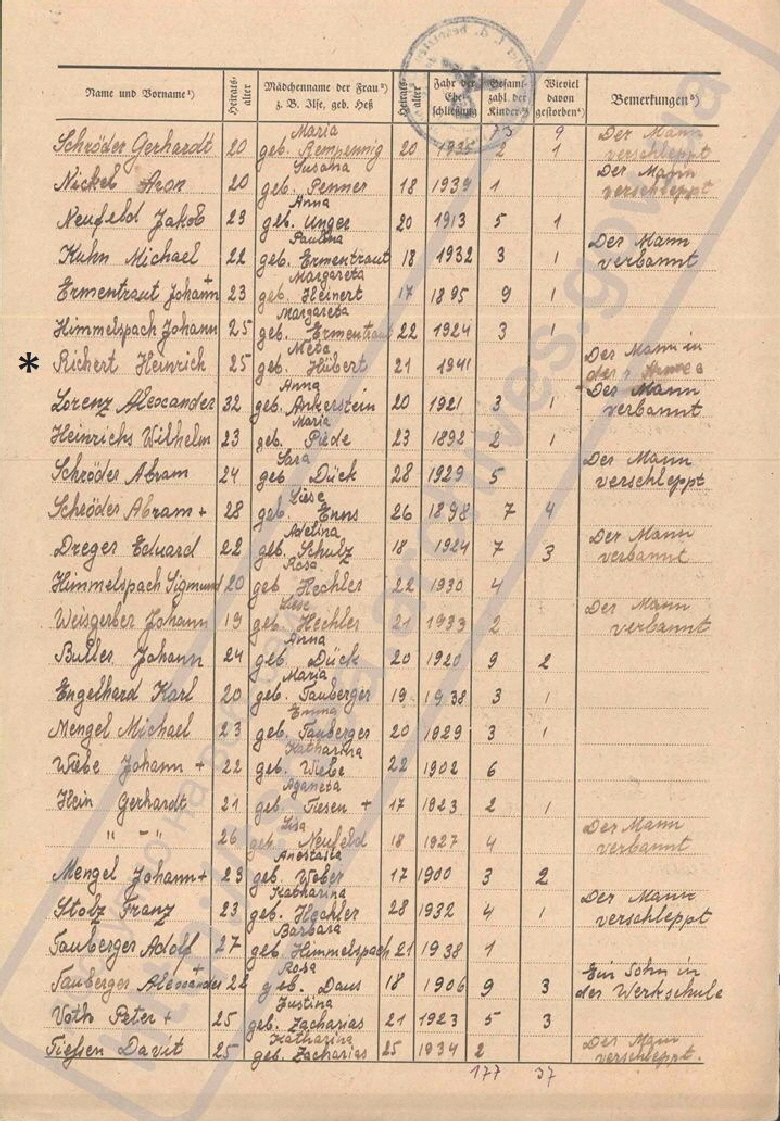 Name und Vorname¹) Heiratsalter Mädchenname der Frau²) z. B. Ilse, geb. Heß Heiratsalter Jahr der Eheschließung Gesamtzahl der Kinder³) Wieviel davon gestorben⁴) Bemerkungen⁵)
Maria 9 Der Mann
Schröder Gerhardt 20 geb. Rempennig 20 1935 2 1 verschleppt
Susana Der Mann
Nickel Aron 20 geb. Penner 18 1939 1 verschleppt
Anna
Neufeld Jakob 29 geb. Unger 20 1913 5 1
Paulina Der Mann
Kuhn Michael 22 geb. Ermentraut 18 1932 3 1 verbannt
Margareta
Ermentraut Johann + 23 geb. Heinert 17 1895 9 1
Margareta
Himmelspach Johann 25 geb. Ermentraut 22 1924 3 1
Meta Der Mann in
* Richert Heinrich 25 geb. Hübert 21 1941 der Armee
Anna Der Mann
Lorenz Alexander 32 geb. Ankerstein 20 1921 3 1 verbannt
Maria
Heinrichs Wilhelm 23 geb. Pede 23 1892 2 1
Sara Der Mann
Schröder Abram 24 geb Dück 28 1929 5 verschleppt
Liese
Schröder Abram + 28 geb. Enns 26 1898 7 4
Adelina Der Mann
Dreger Eduard 22 geb. Schulz 18 1924 7 3 verbannt
Rosa
Himmelspach Sigmund 20 geb Hechler 22 1930 4
Liese Der Mann
Weisgerber Johann 19 geb. Hechler 21 1933 2 verbannt
Anna
Buller Johann 24 geb. Dück 20 1920 9 2
Maria
Engelhard Karl 20 geb. Tauberger 19 1938 3 1
Emma
Mengel Michael 23 geb. Tauberger 20 1929 3 1
Katharina
Wiebe Johann + 22 geb. Wiebe 22 1902 6
Aganeta
Hein Gerhardt 21 geb. Tiesen + 17 1923 2 1
Lisa Der Mann
" -"- 26 geb. Neufeld 18 1927 4 verbannt
Anastasia
Mengel Johann + 23 geb. Weber 17 1900 3 2
Katharina Der Mann
Stolz Franz 23 geb. Hechler 28 1932 4 1 verschleppt
Barbara
Tauberger Adolf 27 geb. Himmelspach 21 1938 1
Rosa Ein Sohn in
Tauberger Alexander + 22 geb. Daus 18 1906 9 3 der Werkschule
Justina
Voth Peter + 25 geb. Zacharias 21 1923 5 3
Katharina Der Mann
Tießen Davit 25 geb. Zacharias 25 1934 2 verschleppt.
177 37